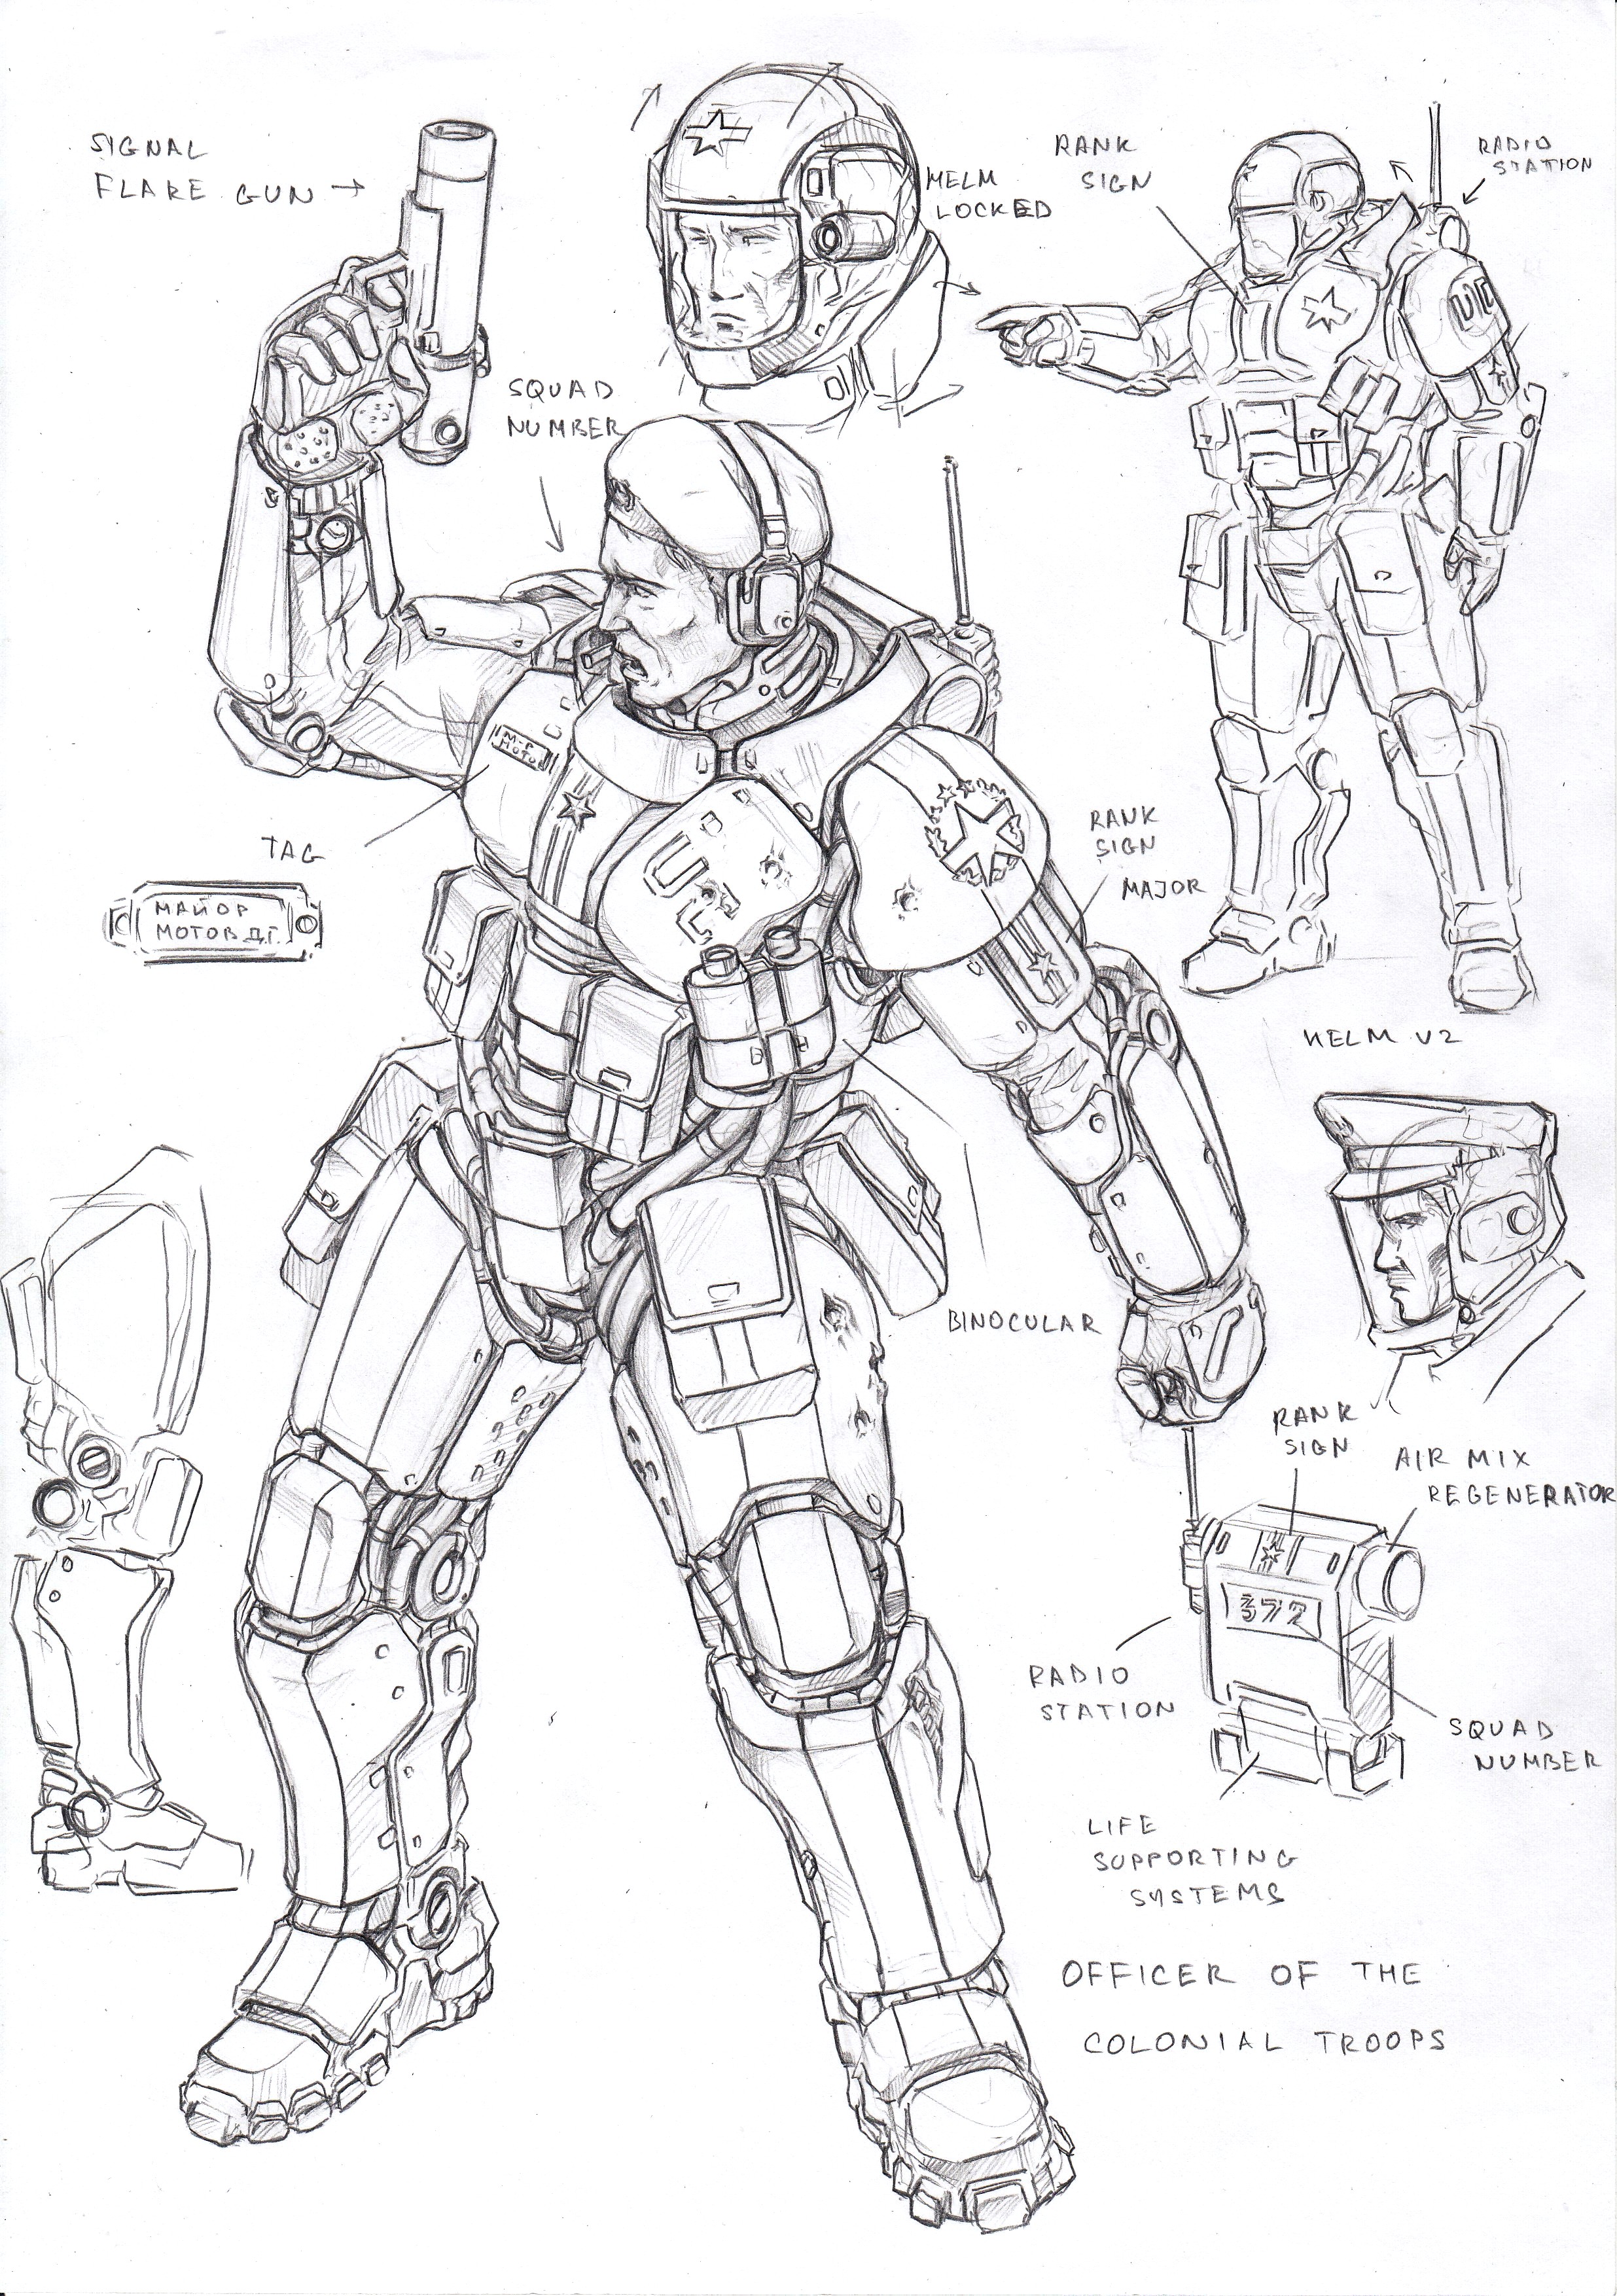 SIGNAL
FLARE GUN →
HELM
LOCKED
RANK
SIGN
RADIO
STATION
SQUAD
NUMBER
TAG
МАЙОР
МОТОВ Д.Г.
RANK
SIGN
MAJOR
HELM V2
BINOCULAR
RANK
SIGN
AIR MIX
REGENERATOR
372
RADIO
STATION
SQUAD
NUMBER
LIFE
SUPPORTING
SYSTEMS
OFFICER OF THE
COLONIAL TROOPS